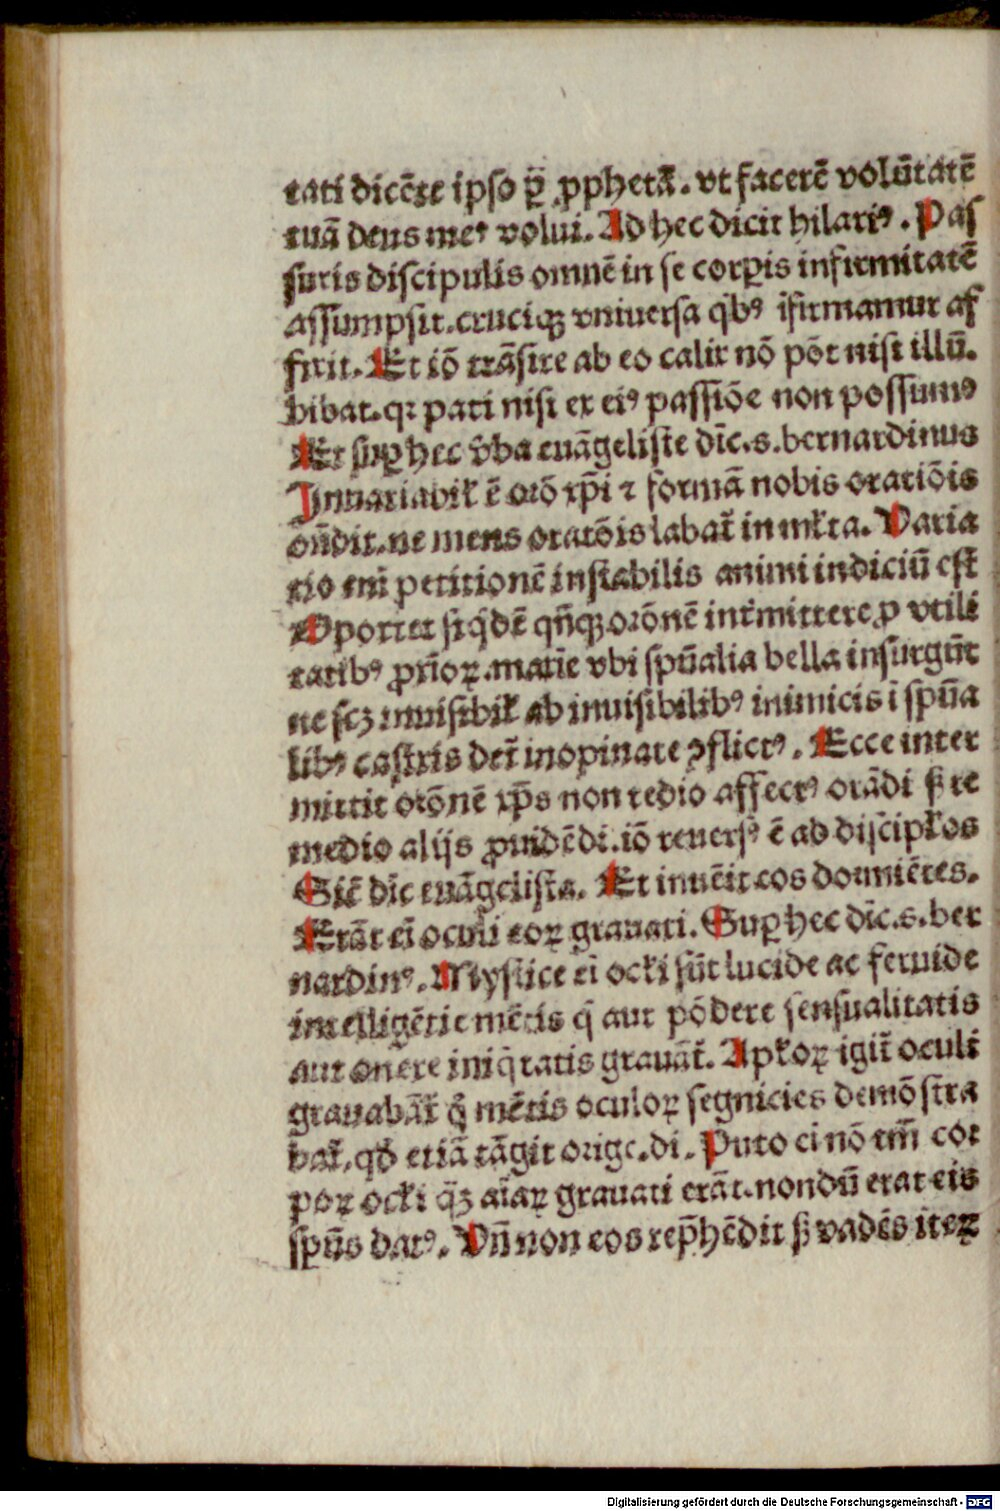 tati dicẽte ipso ꝑ ꝓphetã. vt facerẽ volũtatẽ
tuã deus meꝰ volui. Ad hec dicit hilariꝰ. Pas
suris discipulis omnẽ in se corꝑis infirmitatẽ
assumpsit. cruciqꝫ vniuersa qͥbꝰ ĩfirmamur af
fixit. Et iõ trãsire ab eo calix nõ põt nisi illũ.
bibat. qꝛ pati nisi ex eiꝰ passiõe non possumꝰ
Et suꝑ hec v̓ba euãgeliste dic̃. s. bernardinus
Inuariabil̓ ẽ oꝛõ xp̃i ⁊ formã nobis oratiõis
oñdit. ne mens oratõis labat̃ in ml̓ta. Varia
tio em̃ petitionẽ instabilis animi indiciũ est
Oportet siqͥdẽ qñqꝫ oꝛõnẽ int̓mittere ꝓ vtili
tatibꝰ ꝓxĩoꝝ. maxĩe vbi spũalia bella insurgũt
ne scꝫ inuisibil̓ ab inuisibilibꝰ inimicis ĩ spũa
libꝰ castris det̃ inopinate ꝯflictꝰ. Ecce inter
mittit oꝛõnẽ xp̃s non tedio affectꝰ orãdi sꝫ re
medio alijs ꝓuidẽdi. iõ reuersꝰ ẽ ad discipl̓os
Sic̃ dic̃ euãgelista. Et inuẽit eos dormiẽtes.
Erãt em̃ oculi eoꝝ grauati. Suꝑ hec dic̃. s. ber
nardinꝰ. Mystice em̃ ocl̓i sũt lucide ac feruide
intelligẽtie mẽtis q̃ aut põdere sensualitatis
aut onere iniqͥtatis grauãt̃. Apl̓oꝝ igit̃ oculi
grauabãt̃ qꝛ mẽtis oculoꝝ segnicies demõstra
bat̃. qd̓ etiã tãgit orige. di. Puto em̃ nõ tm̃ cor
poꝝ ocl̓i qͣꝫ aĩaꝝ grauati erãt. nondũ erat eis
spũs datꝰ. Vñ non eos rep̃hẽdit sꝫ vadẽs iteꝝ
Digitalisierung gefördert durch die Deutsche Forschungsgemeinschaft - DFG